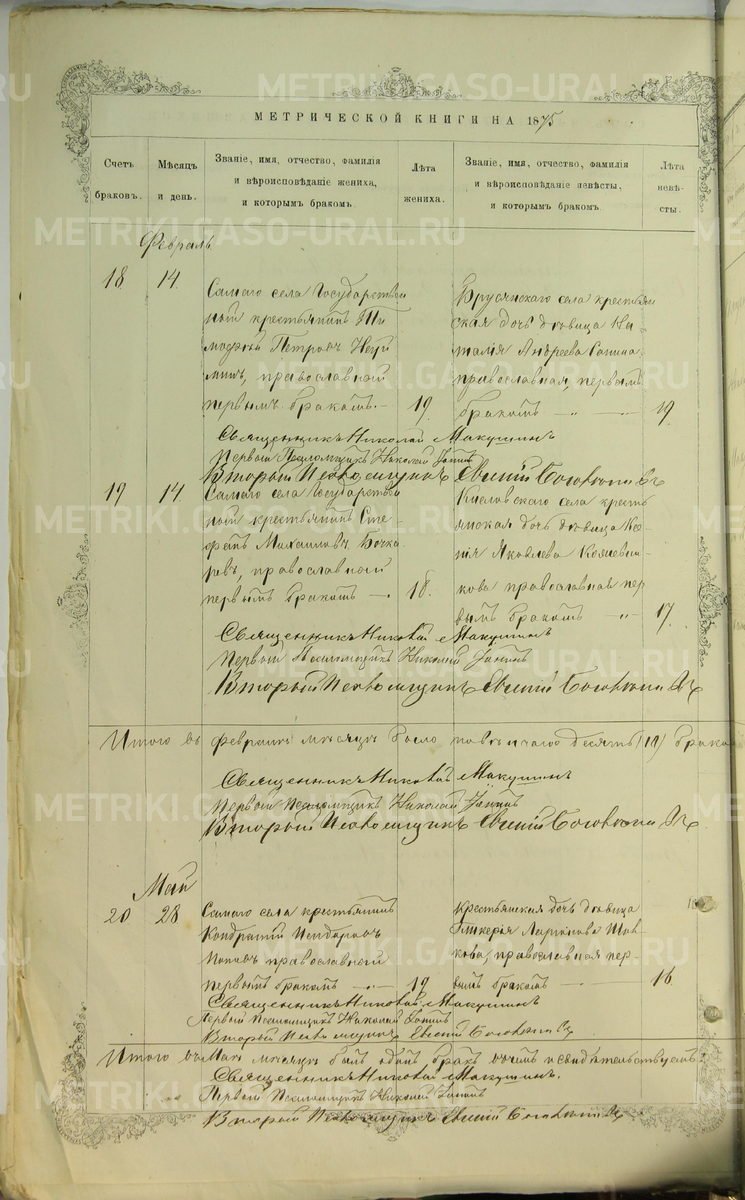 METRIKI.GASO-URAL.RU
МЕТРИЧЕСКОЙ КНИГИ НА 1875
Счетъ браковъ.
Мѣсяцъ и день.
Званіе, имя, отчество, фамилія
и вѣроисповѣданіе жениха,
и которымъ бракомъ.
Лѣта жениха.
Званіе, имя, отчество, фамилія
и вѣроисповѣданіе невѣсты,
и которымъ бракомъ.
Лѣта невѣ-
сты.
Февраль
18 14
Самаго села Государствен
ный крестьянинъ Ти
мофей Петровъ
православный
первымъ бракомъ. 19.
Брусянскаго села крестьян
ская дочь дѣвица На
талія Андреева
православная, первымъ
бракомъ 19.
Священникъ Николай Макушинъ
Первый Псаломщикъ Николай
Второй Псаломщикъ Евгеній
19 14
Самаго села Государствен
ный крестьянинъ Сте
фанъ Михайловъ Бочка
ревъ, православный
первымъ бракомъ 18.
Кисловскаго села кресть
янская дочь дѣвица Ксе
нія Яковлева
православная пер
вымъ бракомъ 17.
Священникъ Николай Макушинъ
Первый Псаломщикъ Николай
Второй Псаломщикъ Евгеній
Итого въ февралѣ мѣсяцѣ было десять (10) брако
Священникъ Николай Макушинъ
Первый Псаломщикъ Николай
Второй Псаломщикъ Евгеній
Май
20 28
Самаго села крестьянинъ
Кондратій
Поповъ православный
первымъ бракомъ 19
Крестьянская дочь дѣвица
Гликерія Ларіонова
православная пер
вымъ бракомъ 16
Священникъ Николай Макушинъ
Первый Псаломщикъ Николай
Второй Псаломщикъ Евгеній
Итого въ Маѣ мѣсяцѣ былъ одинъ бракъ въ чемъ и свидѣтельствуемъ:
Священникъ Николай Макушинъ.
Первый Псаломщикъ Николай
Второй Псаломщикъ Евгеній